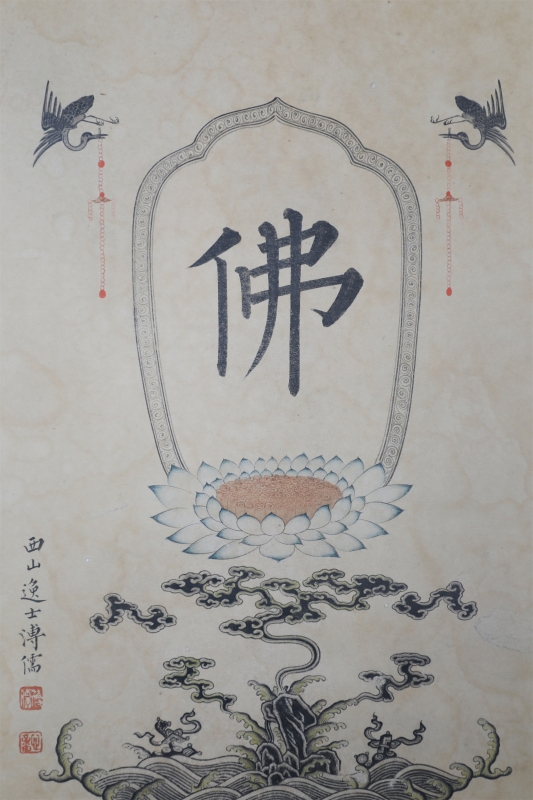 佛
西山逸士溥儒